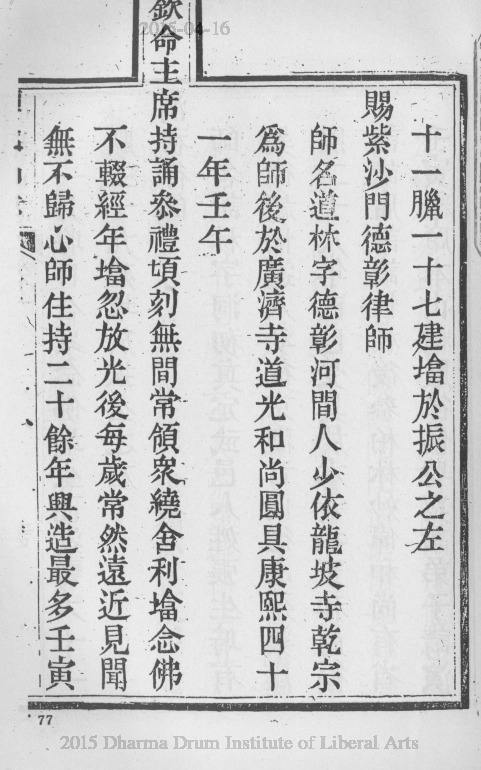 2015-04-16
十一臘一十七建墖於振公之左
賜紫沙門德彰律師
師名道林字德彰河間人少依龍坡寺乾宗
為師後於廣濟寺道光和尚圓具康熙四十
一年壬午
欽命主席持誦叅禮頃刻無間常領衆繞舍利墖念佛
不輟經年墖忽放光後每歲常然遠近見聞
無不歸心師住持二十餘年興造最多壬寅
77
2015 Dharma Drum Institute of Liberal Arts